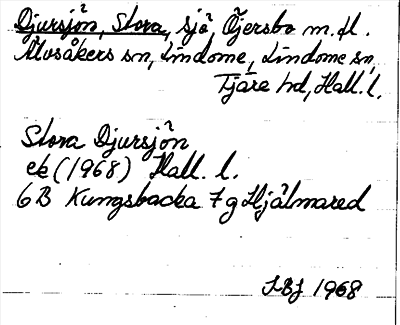 Djursjön, Stora, sjö, Öjersbo m.fl.
Älvsåkers sn, Lindome, Lindome sn,
Fjäre hd, Hall. l.
Stora Djursjön
ek (1968) Hall. l.
6B Kungsbacka 7g Hjälmared
1968